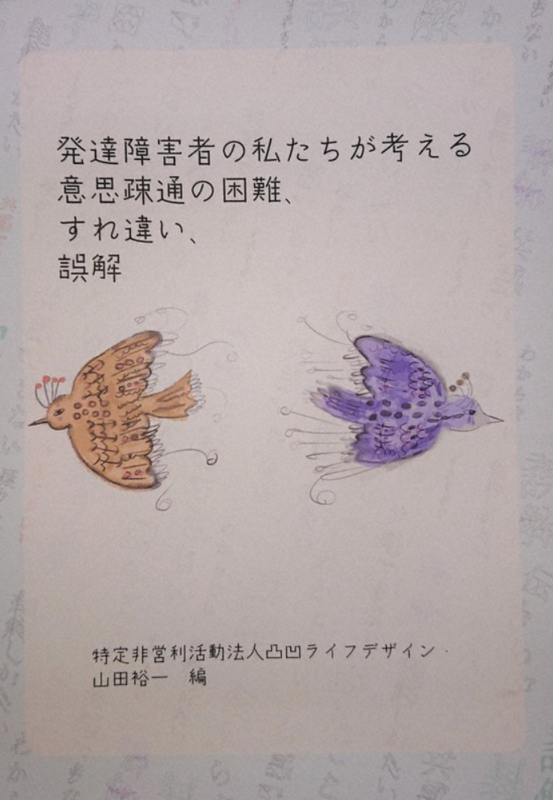 発達障害者の私たちが考える
意思疎通の困難、
すれ違い、
誤解
特定非営利活動法人凸凹ライフデザイン・
山田裕一　編